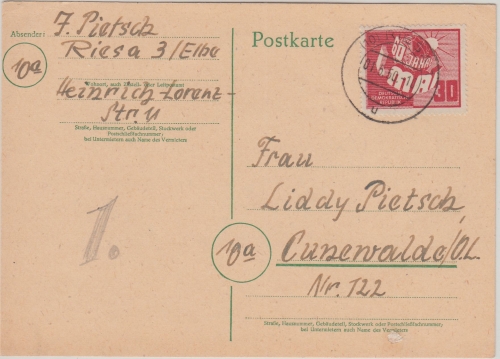 Absender: J. Pietsch
Riesa 3/Elbe
10a
Wohnort, auch Zustell- oder Leitpostamt
Heinrich-Lorenz-
Str. 11
Straße, Hausnummer, Gebäudeteil, Stockwerk oder
Postschließfachnummer;
bei Untermietern auch Name des Vermieters
1.
Postkarte
60 JAHRE
1. MAI
DEUTSCHE
DEMOKRATISCHE
REPUBLIK
30
Frau
Liddy Pietsch,
10a
Cunewalde/O.L.
Nr. 122
Straße, Hausnummer, Gebäudeteil, Stockwerk oder Postschließfachnummer;
bei Untermietern auch Name des Vermieters